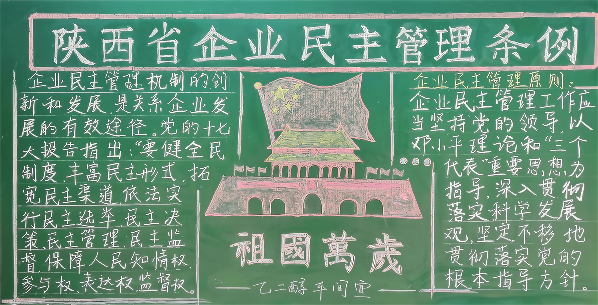 陕西省企业民主管理条例
企业民主管理机制的创
新和发展,是关系企业发
展的有效途径。党的十七
大报告指出:"要健全民
制度,丰富民主形式,拓
宽民主渠道,依法实
行民主选举,民主决
策,民主管理,民主监
督,保障人民知情权,
参与权,表达权,监督权。
祖國萬歲
乙二醇车间宣
企业民主管理原则:
企业民主管理工作应
当坚持党的领导,以
邓小平理论和"三个
代表"重要思想,为
指导,深入贯彻
落实科学发展
观,坚定不移地
贯彻落实党的
根本指导方针。